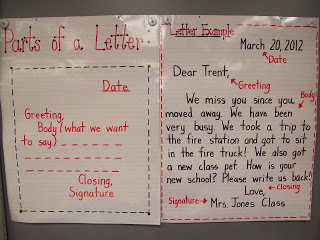 Parts of a Letter
Date
Greeting,
Body (what we want
to say.)
Closing,
Signature
Letter Example
March 20, 2012
Date
Dear Trent,
Greeting
Body
We miss you since you
moved away. We have been
very busy. We took a trip to
the fire station and got to sit
in the fire truck! We also got
a new class pet. How is your
new school? Please write us back!
Love, Closing
Signature Mrs. Jones Class